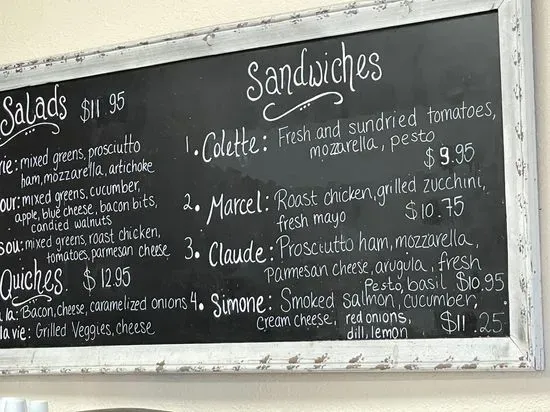 Salads $11.95
mixed greens, prosciutto
ham, mozzarella, artichoke
mixed greens, cucumber,
apple, blue cheese, bacon bits,
candied walnuts
mixed greens, roast chicken,
tomatoes, parmesan cheese
Quiches $12.95
la: Bacon, cheese, caramelized onions
la vie: Grilled Veggies, cheese
Sandwiches
1. Colette: Fresh and sundried tomatoes,
mozarella, pesto
$9.95
2. Marcel: Roast chicken, grilled zucchini,
fresh mayo $10.75
3. Claude: Prosciutto ham, mozzarella,
Parmesan cheese, arugula, fresh
Pesto, basil $10.95
4. Simone: Smoked salmon, cucumber,
cream cheese, red onions,
dill, lemon $11.25